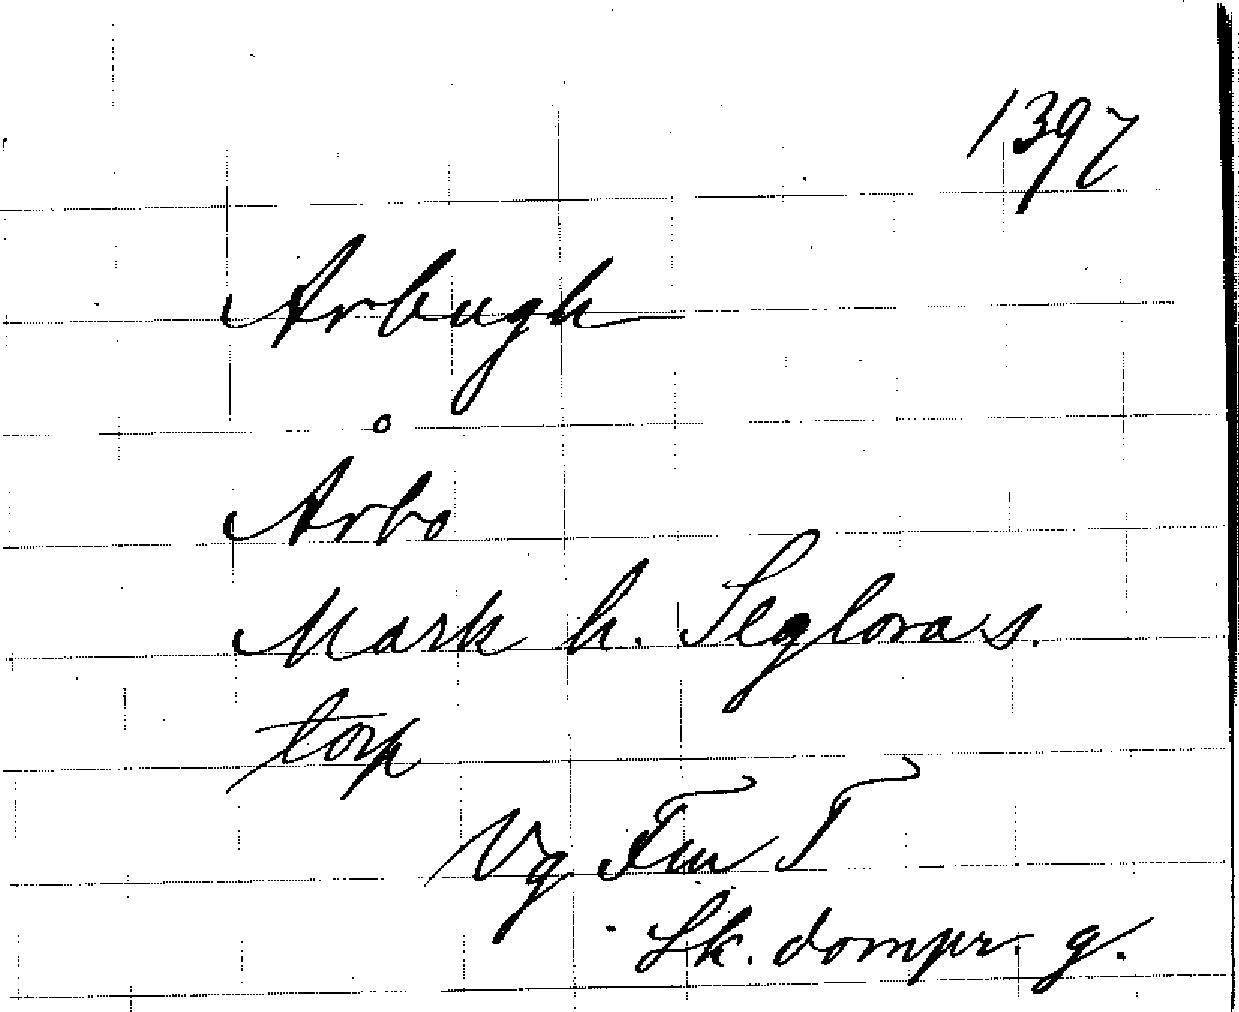 1397
Arbugh
Årbo
Mark h. Seglora s.
torp
Vg Fm T
Sk. dompr. g.